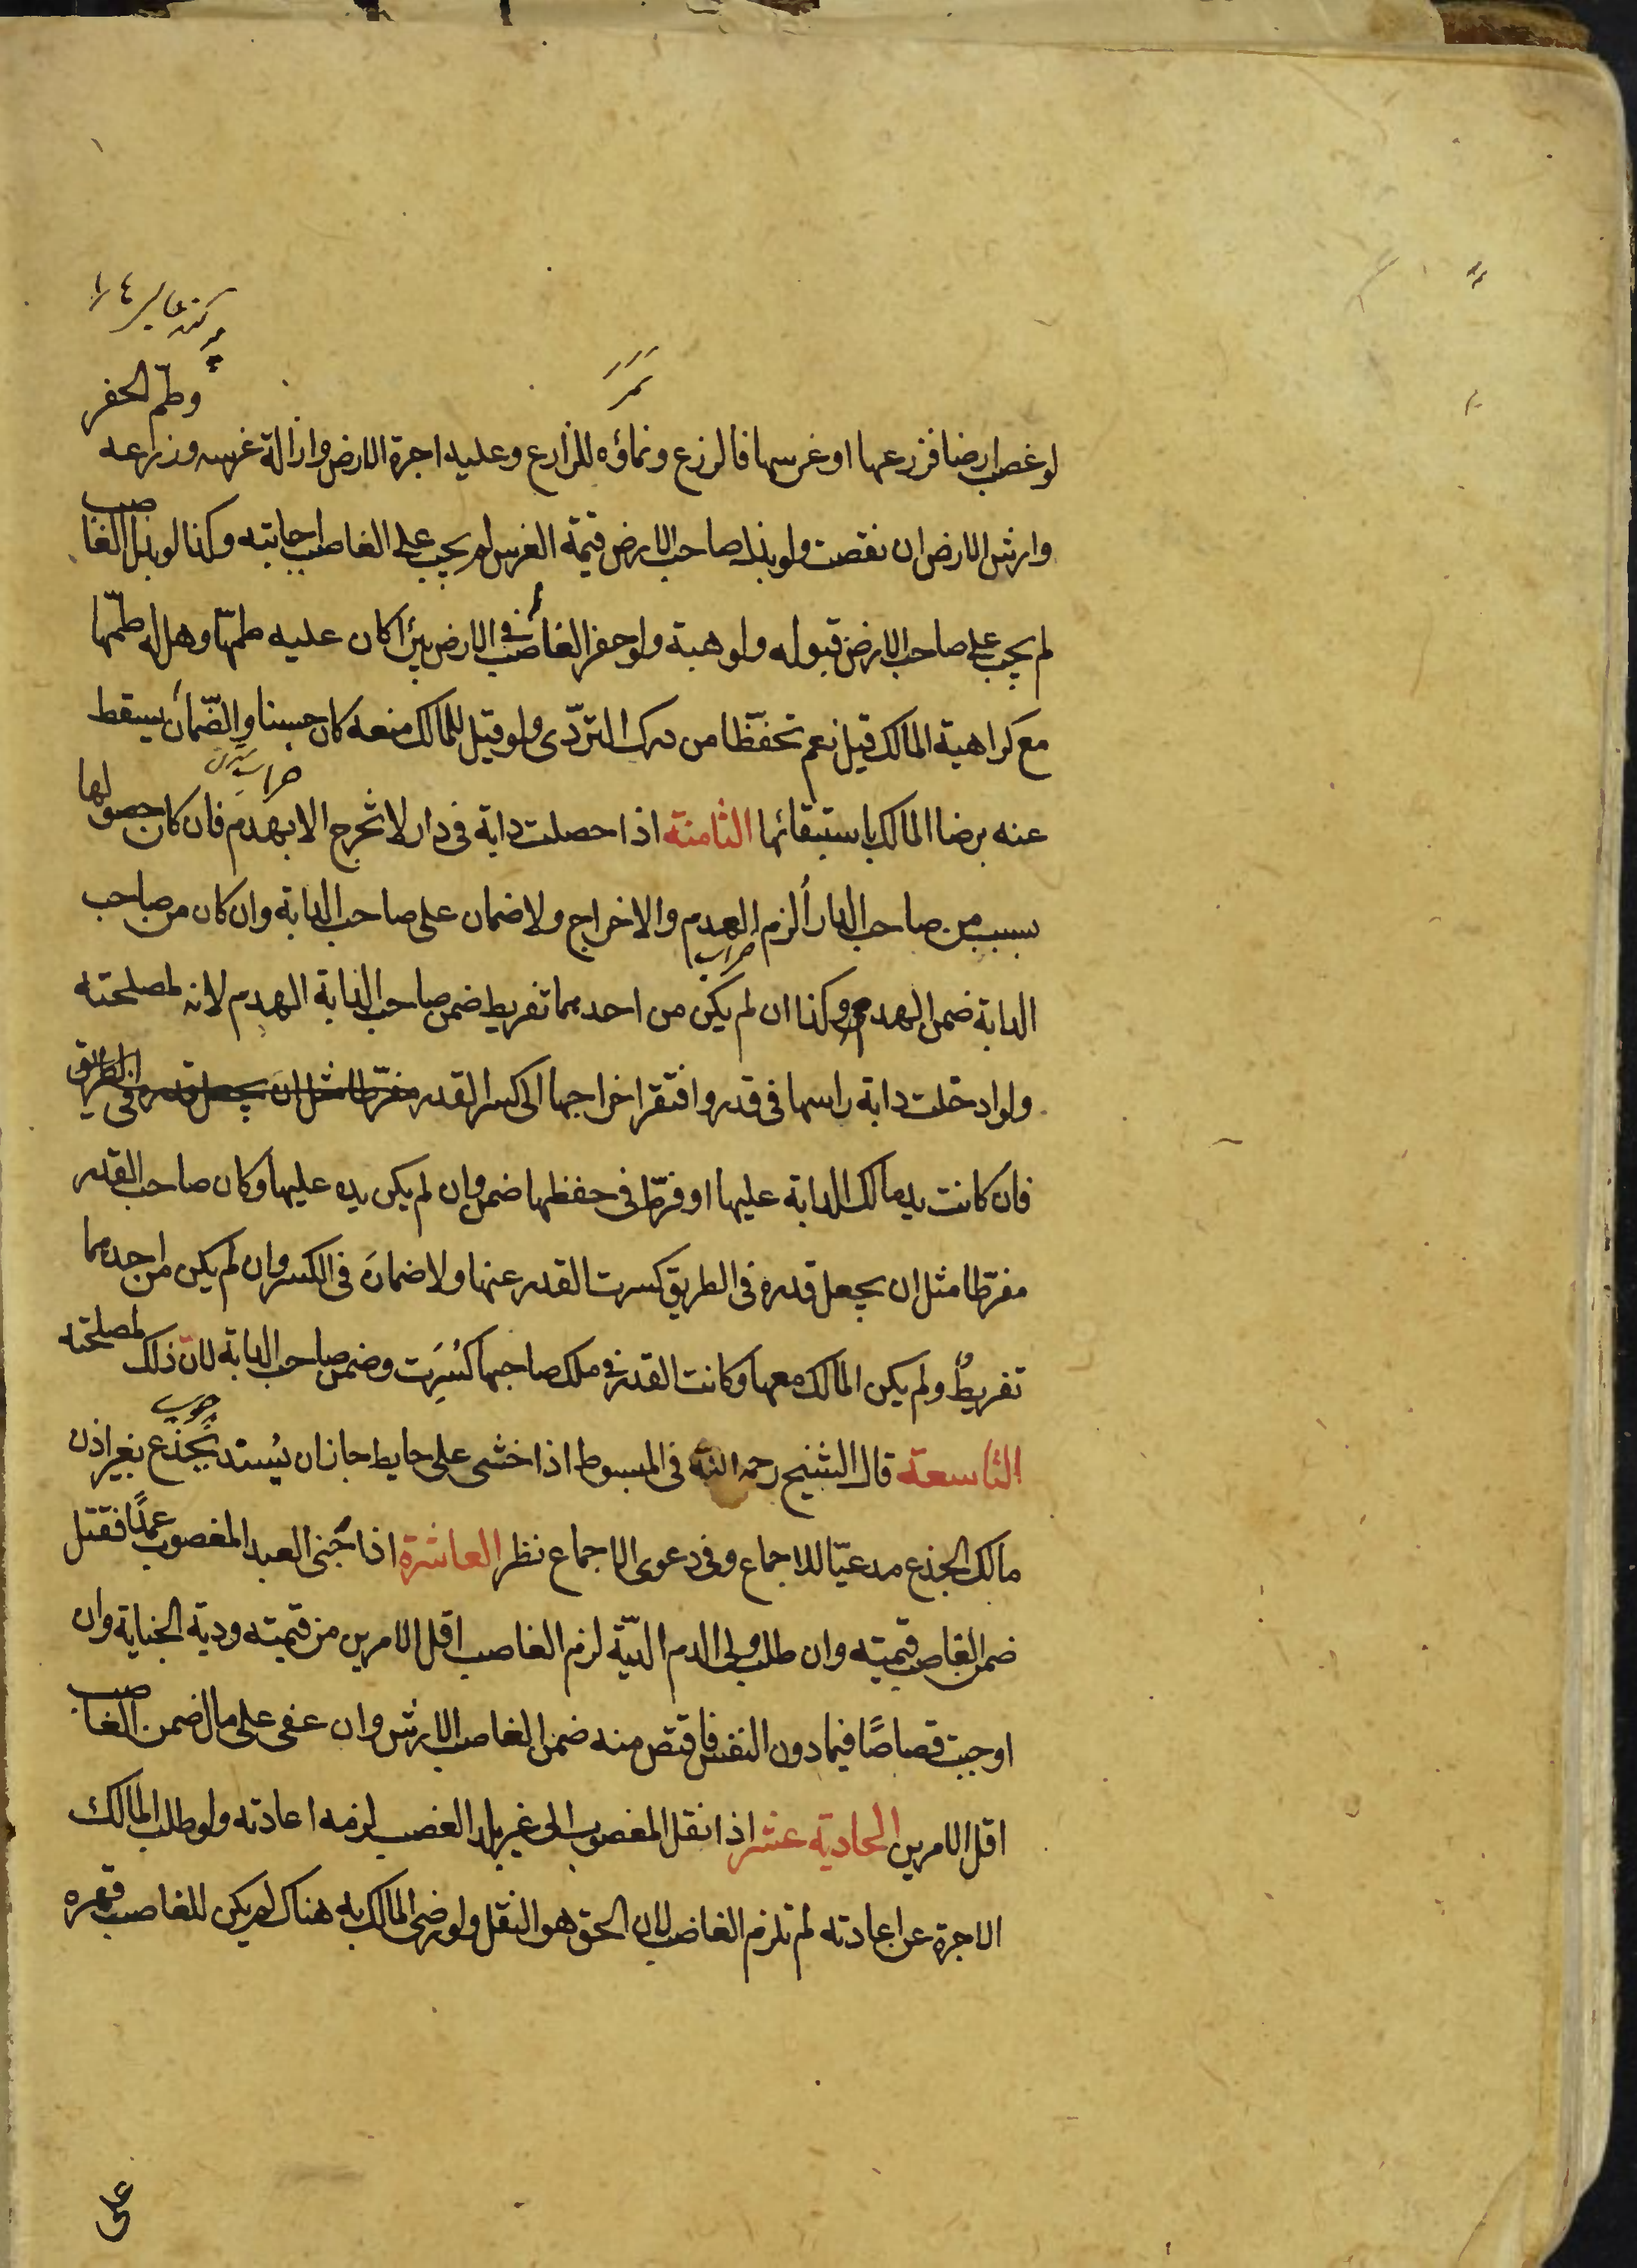 وطمّ الحفر
لو غصب ارضا فزرعها او غرسها فالزرع ونماؤه للزارع وعليه اجرة الارض وازالة غرسه وزرعه
وارش الارض ان نقصت ولو بذل صاحب الارض قيمة الغرس لم يجب على الغاصب اجابته وكذا لو بذل الغاصب
لم يجب على صاحب الارض قبوله ولو هبة ولو حفر الغاصب في الارض بئرا كان عليه طمّها وهل له طمّها
مع كراهية المالك قيل نعم تحفّظا من درك التردّى ولو قيل للمالك منعه كان حسنا والضّمان يسقط
عنه برضا المالك باستبقائها الثامنة اذا حصلت دابة فى دار لا تخرج الا بهدم فان كان حصولها
بسبب من صاحب الدار أُلزم الهدم والاخراج ولا ضمان على صاحب الدابة وان كان من صاحب
الدابة ضمن الهدم وكذا ان لم يكن من احدهما تفريط ضمن صاحب الدابة الهدم لانه لمصلحته
ولو ادخلت دابة راسها فى قدر وافتقر اخراجها الى كسر القدر مفرّطا مثل ان يجعل قدره فى الطريق
فان كانت يد مالك الدابة عليها او فرّط فى حفظها ضمن وان لم يكن يده عليها وكان صاحب القدر
مفرّطا مثل ان يجعل قدره فى الطريق كسرت القدر عنها ولا ضمانَ فى الكسر وان لم يكن من احدهما
تفريطٌ ولم يكن المالك معها وكانت القدر فى ملك صاحبها كُسِرَت وضمن صاحب الدابة لان ذلك لمصلحته
التاسعة قال الشيخ رحمه الله فى المبسوط اذا خشى على حايط جاز ان يُسند بجذع بغير اذن
مالك الجذع مدعيّا للاجماع وفى دعوى الاجماع نظر العاشرة اذا جنى العبد المغصوب عمدًا فقتل
ضمن الغاصب قيمته وان طلب ولى الدم الديّة لزم الغاصب اقل الامرين من قيمته ودية الجناية وان
اوجبت قصاصًا فيما دون النفس فاقتص منه ضمن الغاصب الارش وان عفى على مال ضمن الغاصب
اقل الامرين الحادية عشر اذا نقل المغصوب الى غير بلد الغصب لزمه اعادته ولو طلب المالك
الاجرة عن اعادته لم تلزم الغاصب لان الحق هو النقل ولو رضى المالك به هناك لم يكن للغاصب قهره
على